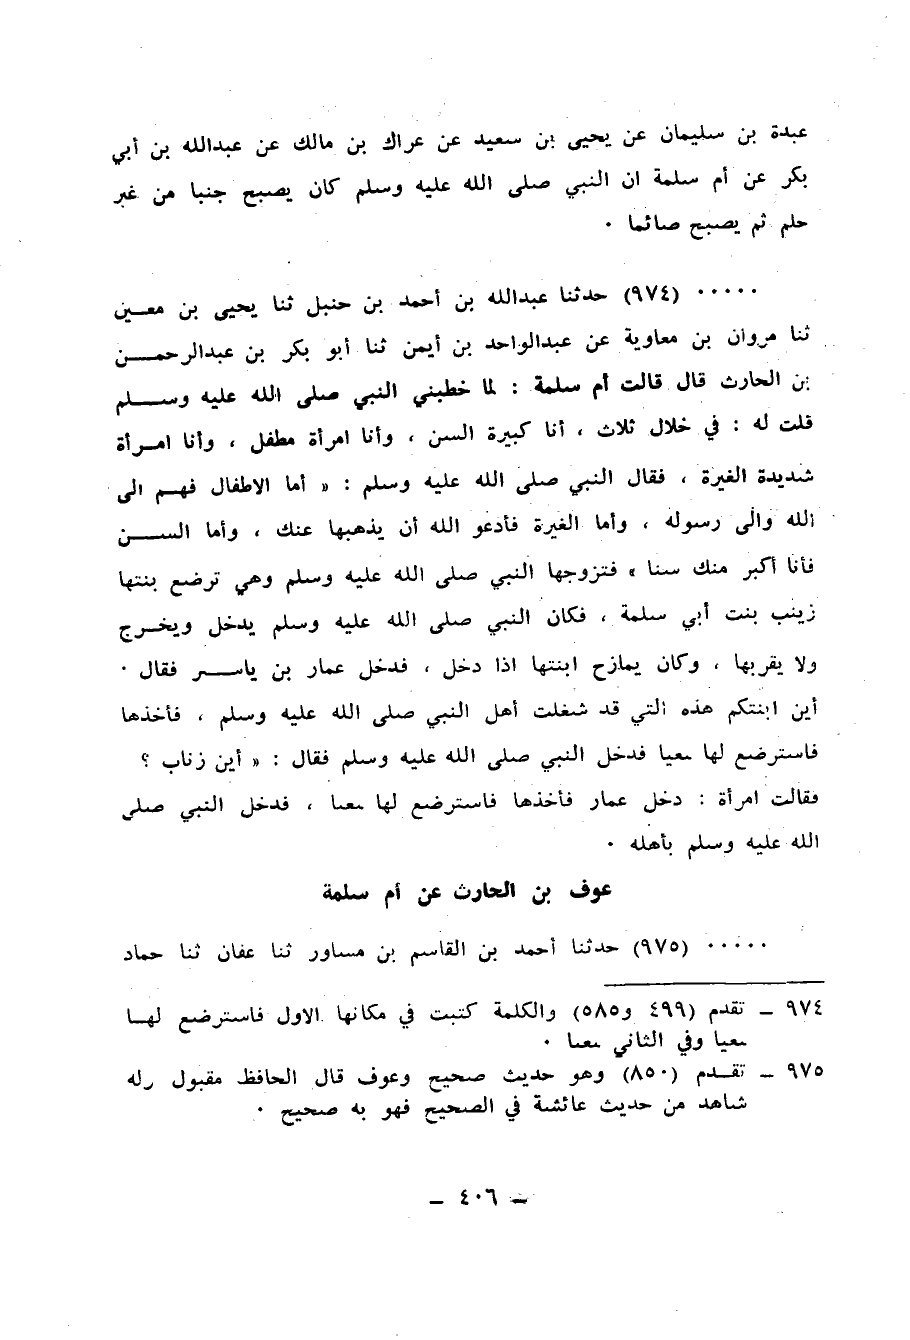 عبدة بن سليمان عن يحيى بن سعيد عن عراك بن مالك عن عبدالله بن أبي
بكر عن أم سلمة ان النبي صلى الله عليه وسلم كان يصبح جنبا من غير
حلم ثم يصبح صائما ٠
٠٠٠٠٠ (٩٧٤) حدثنا عبدالله بن أحمد بن حنبل ثنا يحيى بن معـــين
ثنا مروان بن معاوية عن عبدالواحد بن أيمن ثنا أبو بكر بن عبدالرحمـــن
بن الحارث قال قالت أم سلمة : لما خطبني النبي صلى الله عليه وســـلم
قلت له : في خلال ثلاث ، أنا كبيرة السن ، وأنا امرأة مطفل ، وأنا امـرأة
شديدة الغيرة ، فقال النبي صلى الله عليه وسلم : « أما الاطفال فهـم الى
الله والى رسوله ، وأما الغيرة فأدعو الله أن يذهبها عنك ، وأما الســـن
فأنا أكبر منك سنا » فتزوجها النبي صلى الله عليه وسلم وهي ترضع بنتها
زينب بنت أبي سلمة ، فكان النبي صلى الله عليه وسلم يدخل ويخـرج
ولا يقربها ، وكان يمازح ابنتها اذا دخل ، فدخل عمار بن ياســـر فقال ٠
أين ابنتكم هذه التي قد شغلت أهل النبي صلى الله عليه وسلم ، فأخذها
فاسترضع لها فدخل النبي صلى الله عليه وسلم فقال : « أين زناب ؟
فقالت امرأة : دخل عمار فأخذها فاسترضع لها ، فدخل النبي صلى
الله عليه وسلم بأهله ٠
عوف بن الحارث عن أم سلمة
٠٠٠٠٠ (٩٧٥) حدثنا أحمد بن القاسم بن مساور ثنا عفان ثنا حماد
٩٧٤ ـ تقدم (٤٩٩ و٥٨٥) والكلمة كتبت في مكانها الاول فاسترضع لهـا
وفي الثاني ٠
٩٧٥ ـ تقـدم (٨٥٠) وهو حديث صحيح وعوف قال الحافظ مقبول وله
شاهد من حديث عائشة في الصحيح فهو به صحيح ٠
ـ ٤٠٦ ـ